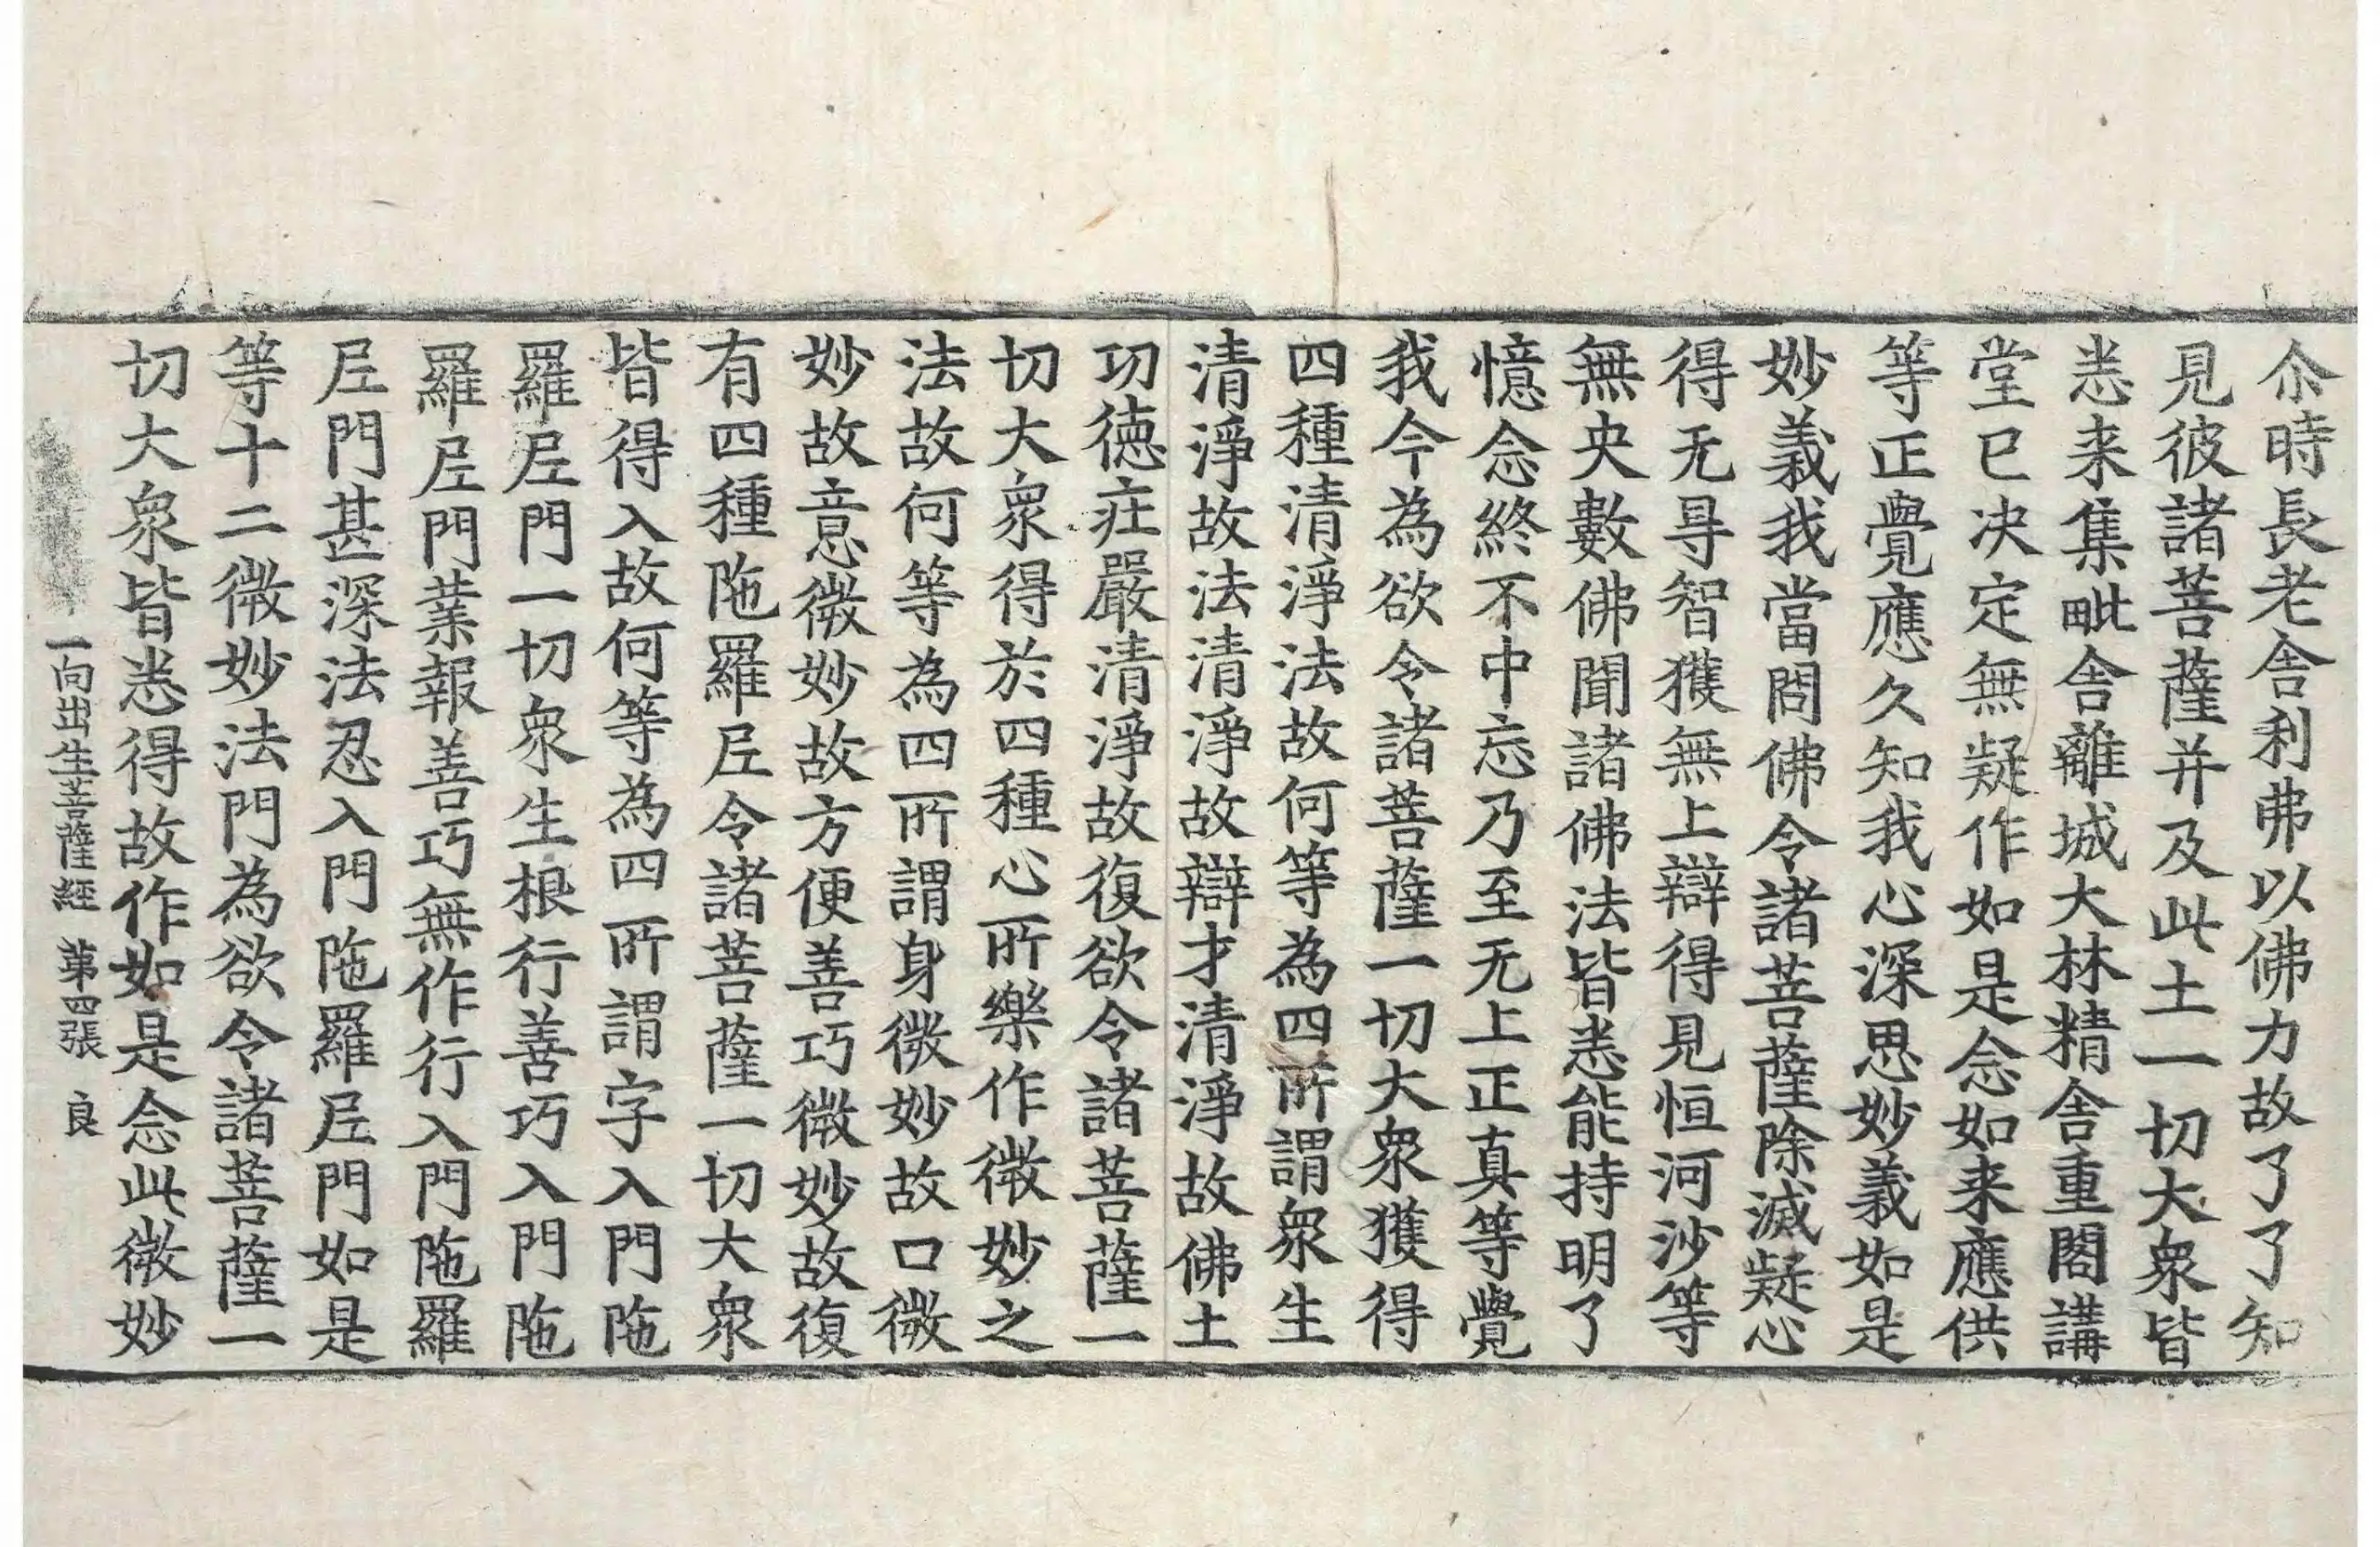 尒時長老舎利弗以佛力故了了知
見彼諸菩薩并及此土一切大衆皆
悉来集毗舎離城大林精舎重閣講
堂已决定無疑作如是念如来應供
等正覺應久知我心深思妙義如是
妙義我當問佛令諸菩薩除滅疑心
得无㝵智獲無上辯得見恒河沙等
無央數佛聞諸佛法皆悉能持明了
憶念終不中忘乃至无上正真等覺
我今為欲令諸菩薩一切大衆獲得
四種清淨法故何等為四所謂衆生
清淨故法清淨故辯才清淨故佛土
功德莊嚴清淨故復欲令諸菩薩一
切大衆得於四種心所樂作微妙之
法故何等為四所謂身微妙故口微
妙故意微妙故方便善巧微妙故復
有四種陁羅𡰱令諸菩薩一切大衆
皆得入故何等為四所謂字入門陁
羅𡰱門一切衆生根行善巧入門陁
羅𡰱門業報善巧無作行入門陁羅
𡰱門甚深法忍入門陁羅𡰱門如是
等十二微妙法門為欲令諸菩薩一
切大衆皆悉得故作如是念此微妙
一向出生菩薩經 第四張 良